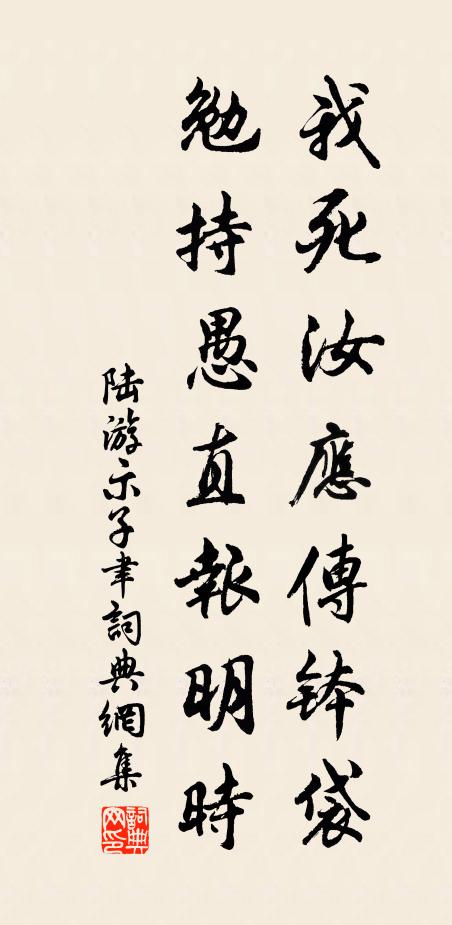 我死汝應傳鉢袋
勉持愚直報明時
陆游示子聿詞典網集
詞典網印